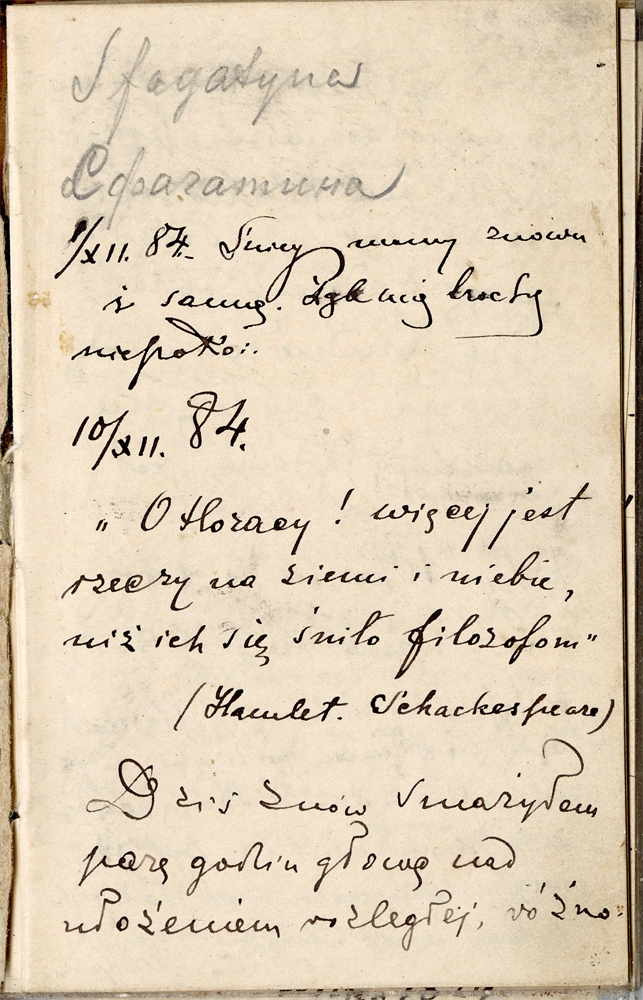 Sfagatyna
Сфагатина
1/XII. 84. Śnieg mamy znowu
i sannę. Ząb mię trochę
niepokoi.
10/XII. 84.
„O Horacy! więcej jest
rzeczy na ziemi i niebie,
niż ich się śniło filozofom"
(Hamlet. Schackespeare)
Dziś znów smażyłem
parę godzin głowę nad
ułożeniem rozległej, różno-